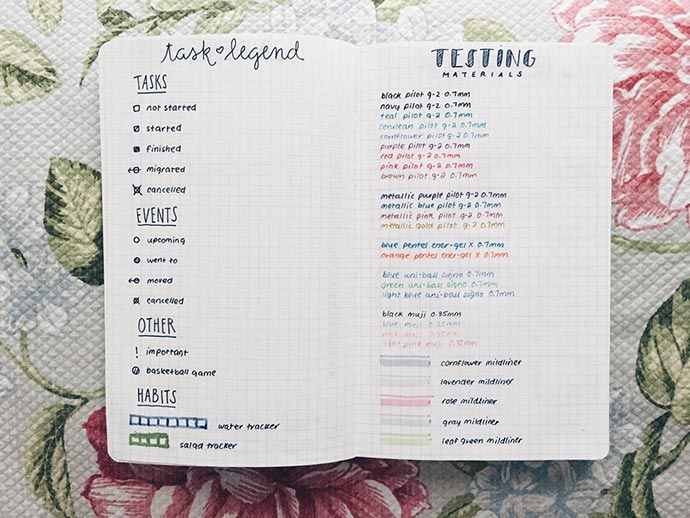 task legend
TASKS
not started
started
finished
migrated
cancelled
EVENTS
upcoming
went to
moved
cancelled
OTHER
! important
basketball game
HABITS
water tracker
salad tracker
TESTING
MATERIALS
black pilot g-2 0.7mm
navy pilot g-2 0.7mm
teal pilot g-2 0.7mm
cerulean pilot g-2 0.7mm
cornflower pilot g-2 0.7mm
purple pilot g-2 0.7mm
red pilot g-2 0.7mm
pink pilot g-2 0.7mm
brown pilot g-2 0.7mm
metallic purple pilot g-2 0.7mm
metallic blue pilot g-2 0.7mm
metallic pink pilot g-2 0.7mm
metallic gold pilot g-2 0.7mm
blue pentel ener-gel X 0.7mm
orange pentel ener-gel X 0.7mm
blue uni-ball signo 0.7mm
green uni-ball signo 0.7mm
light blue uni-ball signo 0.7mm
black muji 0.35mm
blue muji 0.35mm
pink muji 0.35mm
light pink muji 0.35mm
cornflower mildliner
lavender mildliner
rose mildliner
gray mildliner
leaf green mildliner